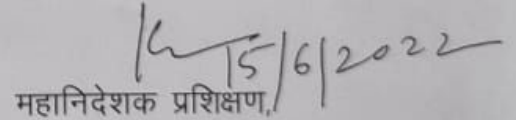 15/6/2022
महानिदेशक प्रशिक्षण,